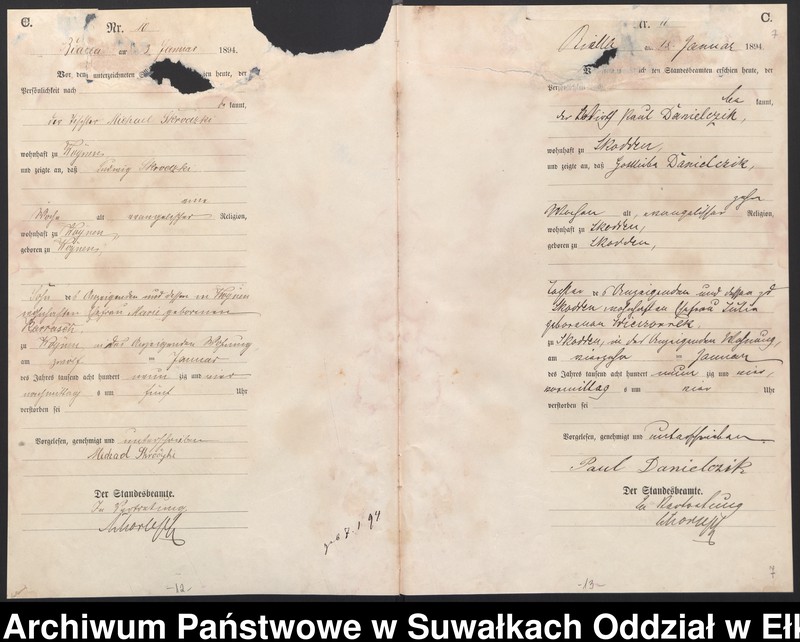 C.
Nr. 10
am 2 Januar 1894.
Vor dem unterzeichneten heute, der
Persönlichkeit nach
be kannt,
der Michael
wohnhaft zu
und zeigte an, daß Ludwig
eine
Woche alt evangelischer Religion,
wohnhaft zu
geboren zu
Sohn des Anzeigenden und dessen in
wohnhaften Ehefrau Marie geborenen
Karrasch
zu in des Anzeigenden Wohnung
am Januar
des Jahres tausend acht hundert neun zig und vier
nachmittag s um fünf Uhr
verstorben sei
Vorgelesen, genehmigt und unterschrieben
Michael
Der Standesbeamte.
In Vertretung
-12-
geb 7. 1. 94
Nr. 11
C.
7
Bialla am 15. Januar 1894
den Standesbeamten erschien heute, der
be kannt,
der Wirth Paul Danielczik,
wohnhaft zu Skodden,
und zeigte an, daß Gottliebe Danielczik,
zehn
Wochen alt, evangelischer Religion,
wohnhaft zu Skodden,
geboren zu Skodden,
Tochter des Anzeigenden und dessen zu
Skodden wohnhaften Ehefrau Julie
geborenen
zu Skodden, in des Anzeigenden Wohnung,
am vierzehn Januar
des Jahres tausend acht hundert neun zig und vier,
vormittag s um vier Uhr
verstorben sei
Vorgelesen, genehmigt und unterschrieben
Paul Danielczik
Der Standesbeamte.
In Vertretung
7
-13-
Archiwum Państwowe w Suwałkach Oddział w Eł